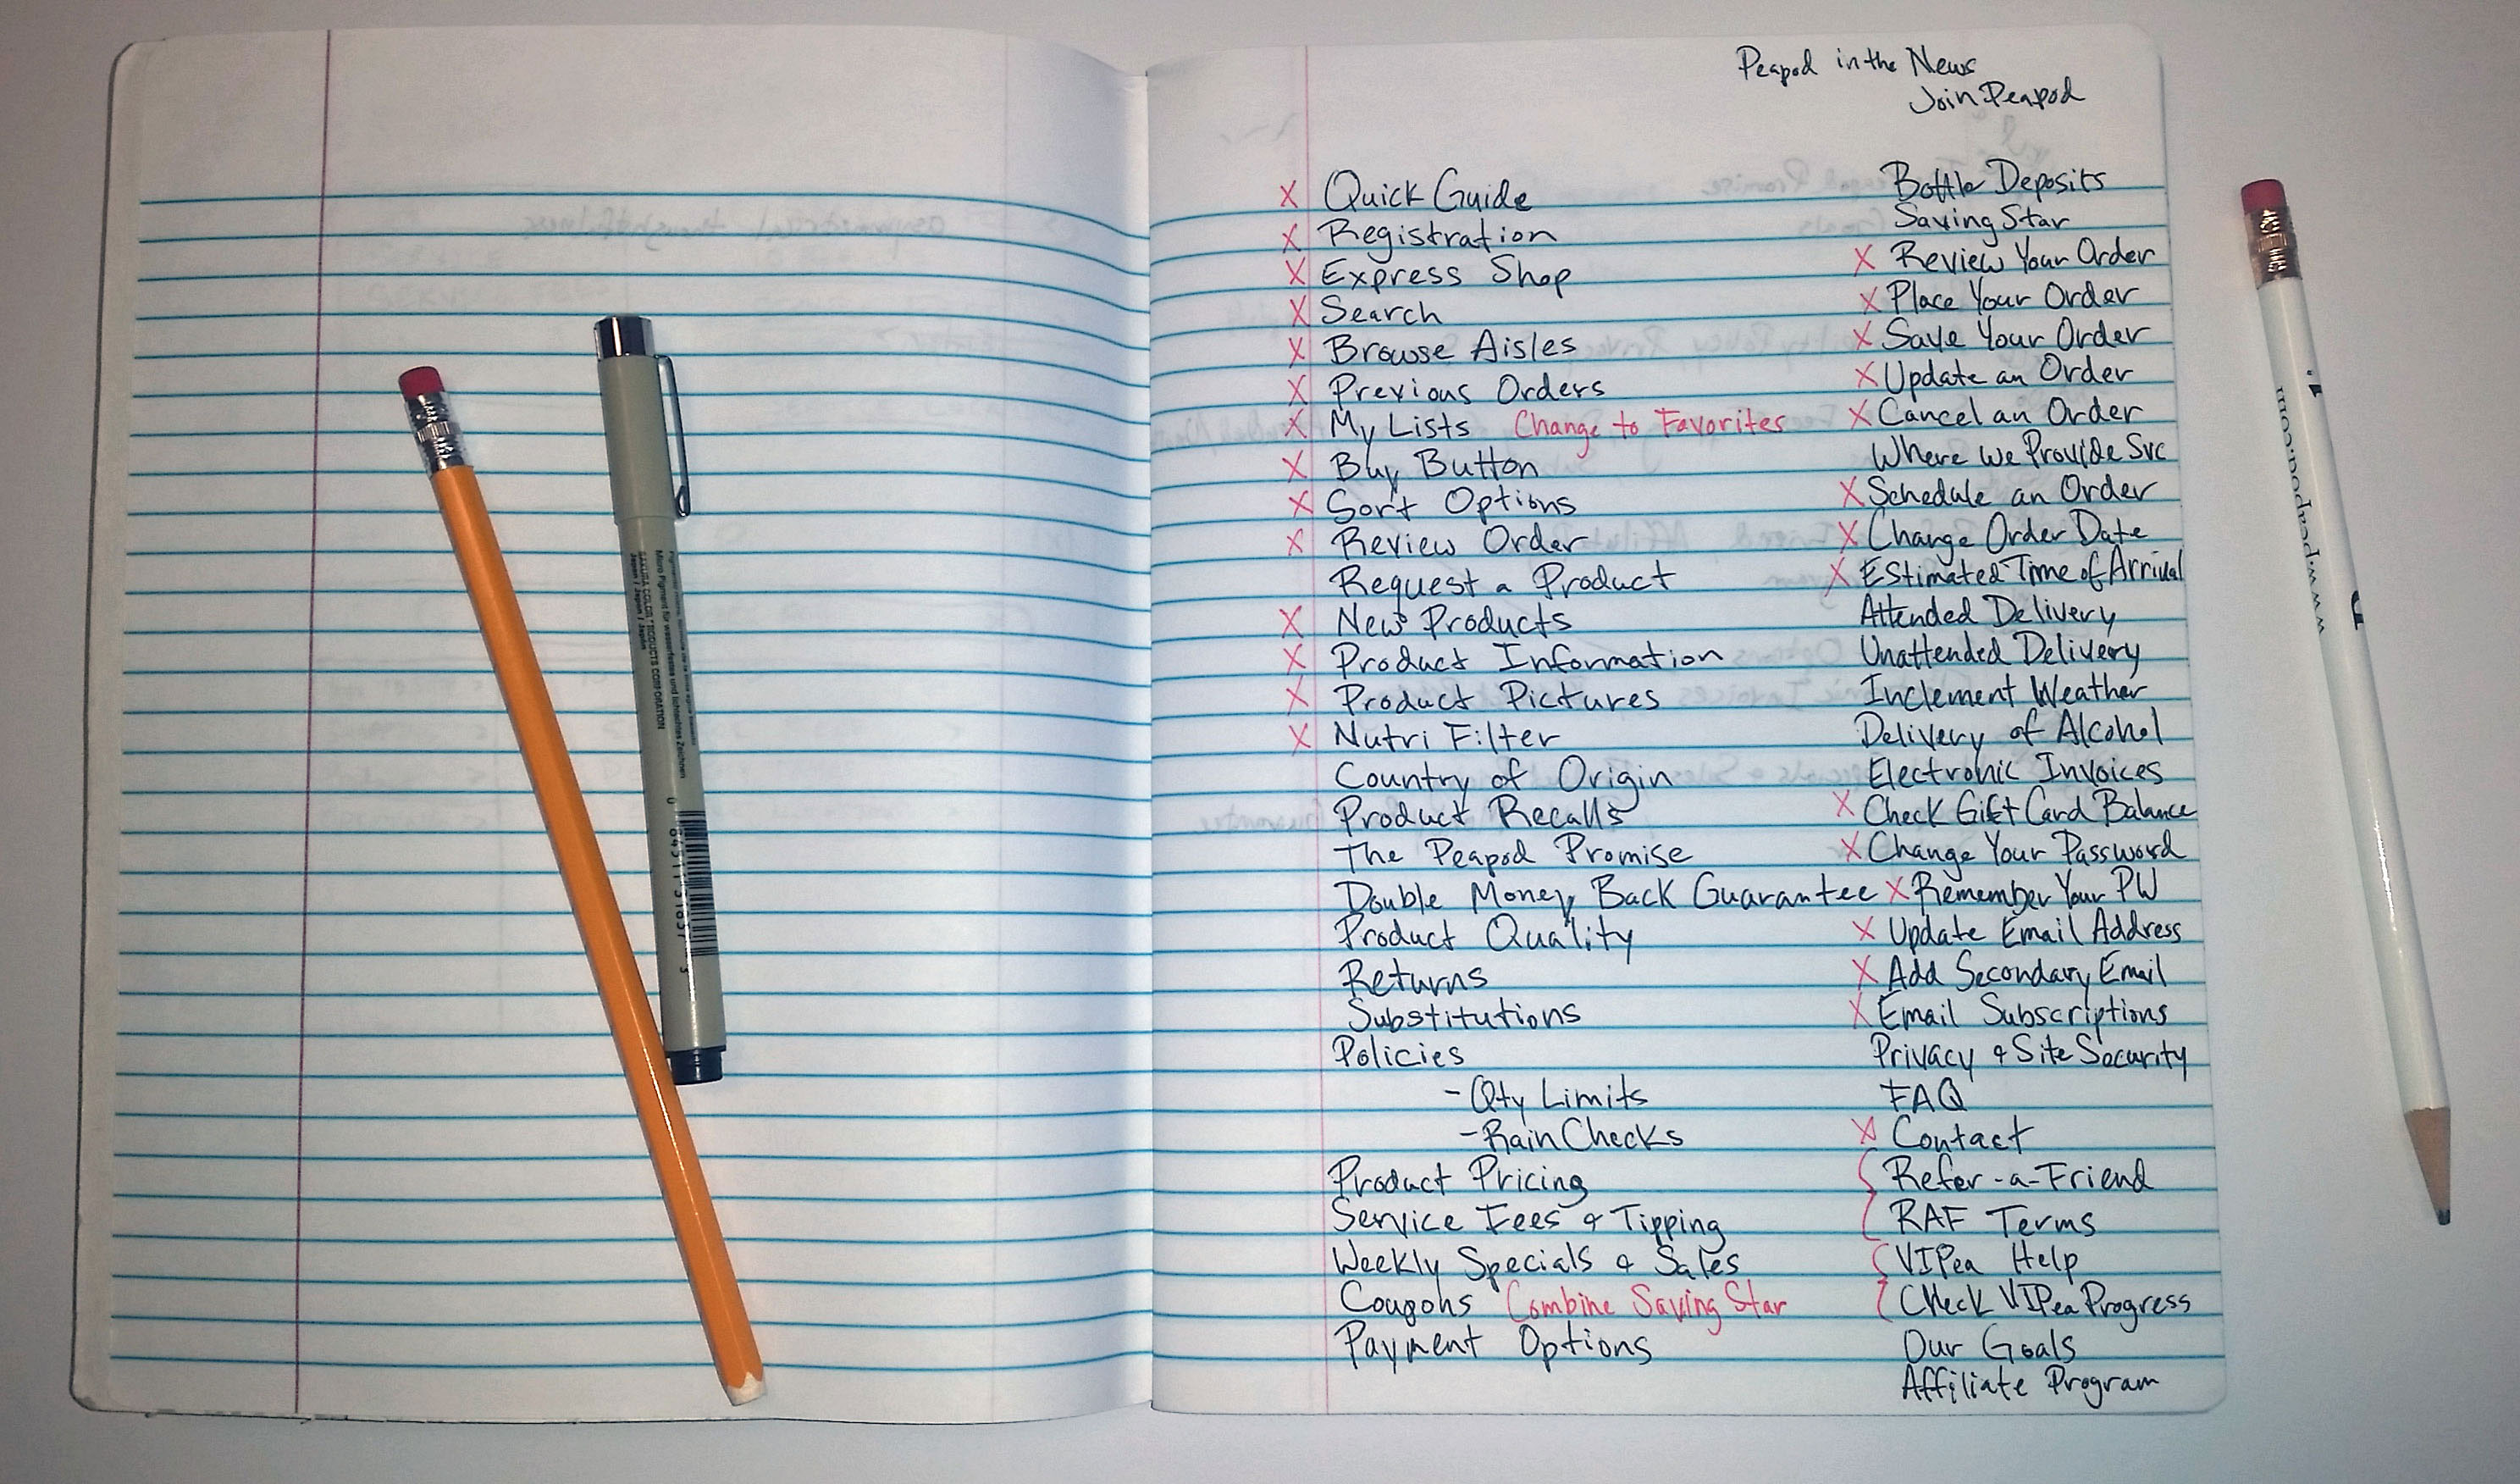 Peapod in the News
Join Peapod
X Quick Guide
X Registration
X Express Shop
X Search
X Browse Aisles
X Previous Orders
X My Lists Change to Favorites
X Buy Button
X Sort Options
X Review Order
Request a Product
X New Products
X Product Information
X Product Pictures
X Nutri Filter
Country of Origin
Product Recalls
The Peapod Promise
Double Money Back Guarantee
Product Quality
Returns
Substitutions
Policies
- Qty Limits
- Rain Checks
Product Pricing
Service Fees & Tipping
Weekly Specials & Sales
Coupons Combine Saving Star
Payment Options
Bottle Deposits
Saving Star
X Review Your Order
X Place Your Order
X Save Your Order
X Update an Order
X Cancel an Order
Where we Provide Svc
X Schedule an Order
X Change Order Date
X Estimated Time of Arrival
Attended Delivery
Unattended Delivery
Inclement Weather
Delivery of Alcohol
Electronic Invoices
X Check Gift Card Balance
X Change Your Password
X Remember Your PW
X Update Email Address
X Add Secondary Email
X Email Subscriptions
Privacy & Site Security
FAQ
X Contact
Refer-a-Friend
RAF Terms
VIPea Help
Check VIPea Progress
Our Goals
Affiliate Program
www.peapod.com
SAKURA COLOR PRODUCTS CORPORATION
Japan / Japon / Japón